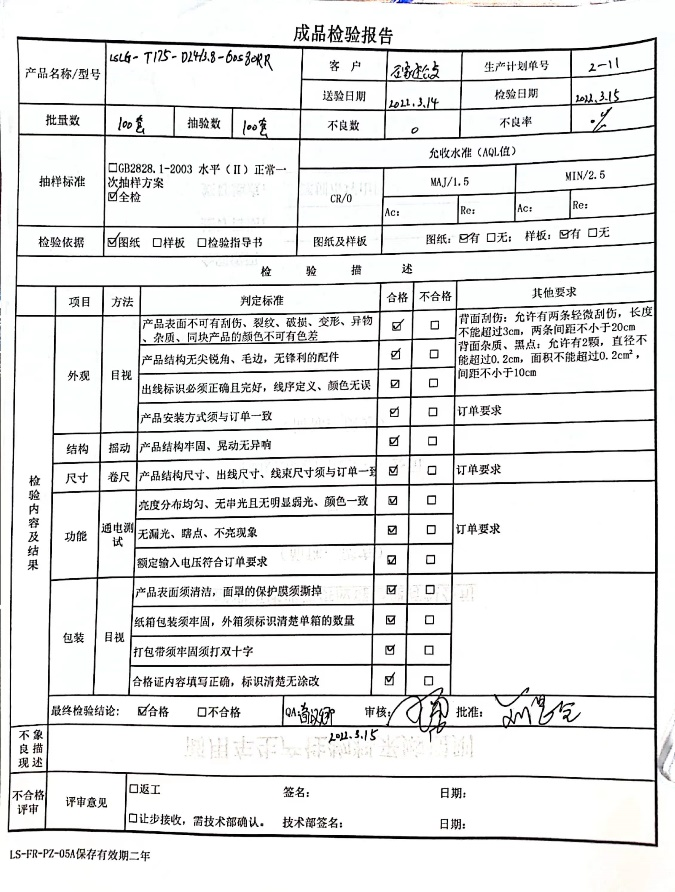 成品检验报告
产品名称/型号
客 户
生产计划单号
2-11
送验日期
2022.3.14
检验日期
2022.3.15
批量数
100套
抽验数
100套
不良数
0
不良率
抽样标准
□GB2828.1-2003 水平（Ⅱ）正常一
次抽样方案
☑全检
允收水准（AQL值）
CR/0
MAJ/1.5
MIN/2.5
Ac:
Re:
Ac:
Re:
检验依据
☑图纸 □样板 □检验指导书
图纸及样板
图纸：☑有 □无； 样板：☑有 □无
检 验 描 述
检验内容及结果
项目
方法
判定标准
合格
不合格
其他要求
外观
目视
产品表面不可有刮伤、裂纹、破损、变形、异物
、杂质、同块产品的颜色不可有色差
☑ □
背面刮伤：允许有两条轻微刮伤，长度
不能超过3cm，两条间距不小于20cm
背面杂质、黑点：允许有2颗，直径不
能超过0.2cm，面积不能超过0.2cm²，
间距不小于10cm
产品结构无尖锐角、毛边，无锋利的配件
☑ □
出线标识必须正确且完好，线序定义、颜色无误
☑ □
产品安装方式须与订单一致
☑ □
订单要求
结构
摇动
产品结构牢固、晃动无异响
☑ □
尺寸
卷尺
产品结构尺寸、出线尺寸、线束尺寸须与订单一致
☑ □
订单要求
功能
通电测
试
亮度分布均匀、无串光且无明显弱光、颜色一致
☑ □
无漏光、瞎点、不亮现象
☑ □
订单要求
额定输入电压符合订单要求
☑ □
包装
目视
产品表面须清洁，面罩的保护膜须撕掉
☑ □
纸箱包装须牢固，外箱须标识清楚单箱的数量
☑ □
打包带须牢固须打双十字
☑ □
合格证内容填写正确，标识清楚无涂改
☑ □
最终检验结论：
☑合格 □不合格
QA:
审核：
批准：
2022.3.15
不良现象描述
不合格
评审
评审意见
□返工
签名：
日期：
□让步接收，需技术部确认。
技术部签名：
日期：
LS-FR-PZ-05A保存有效期二年